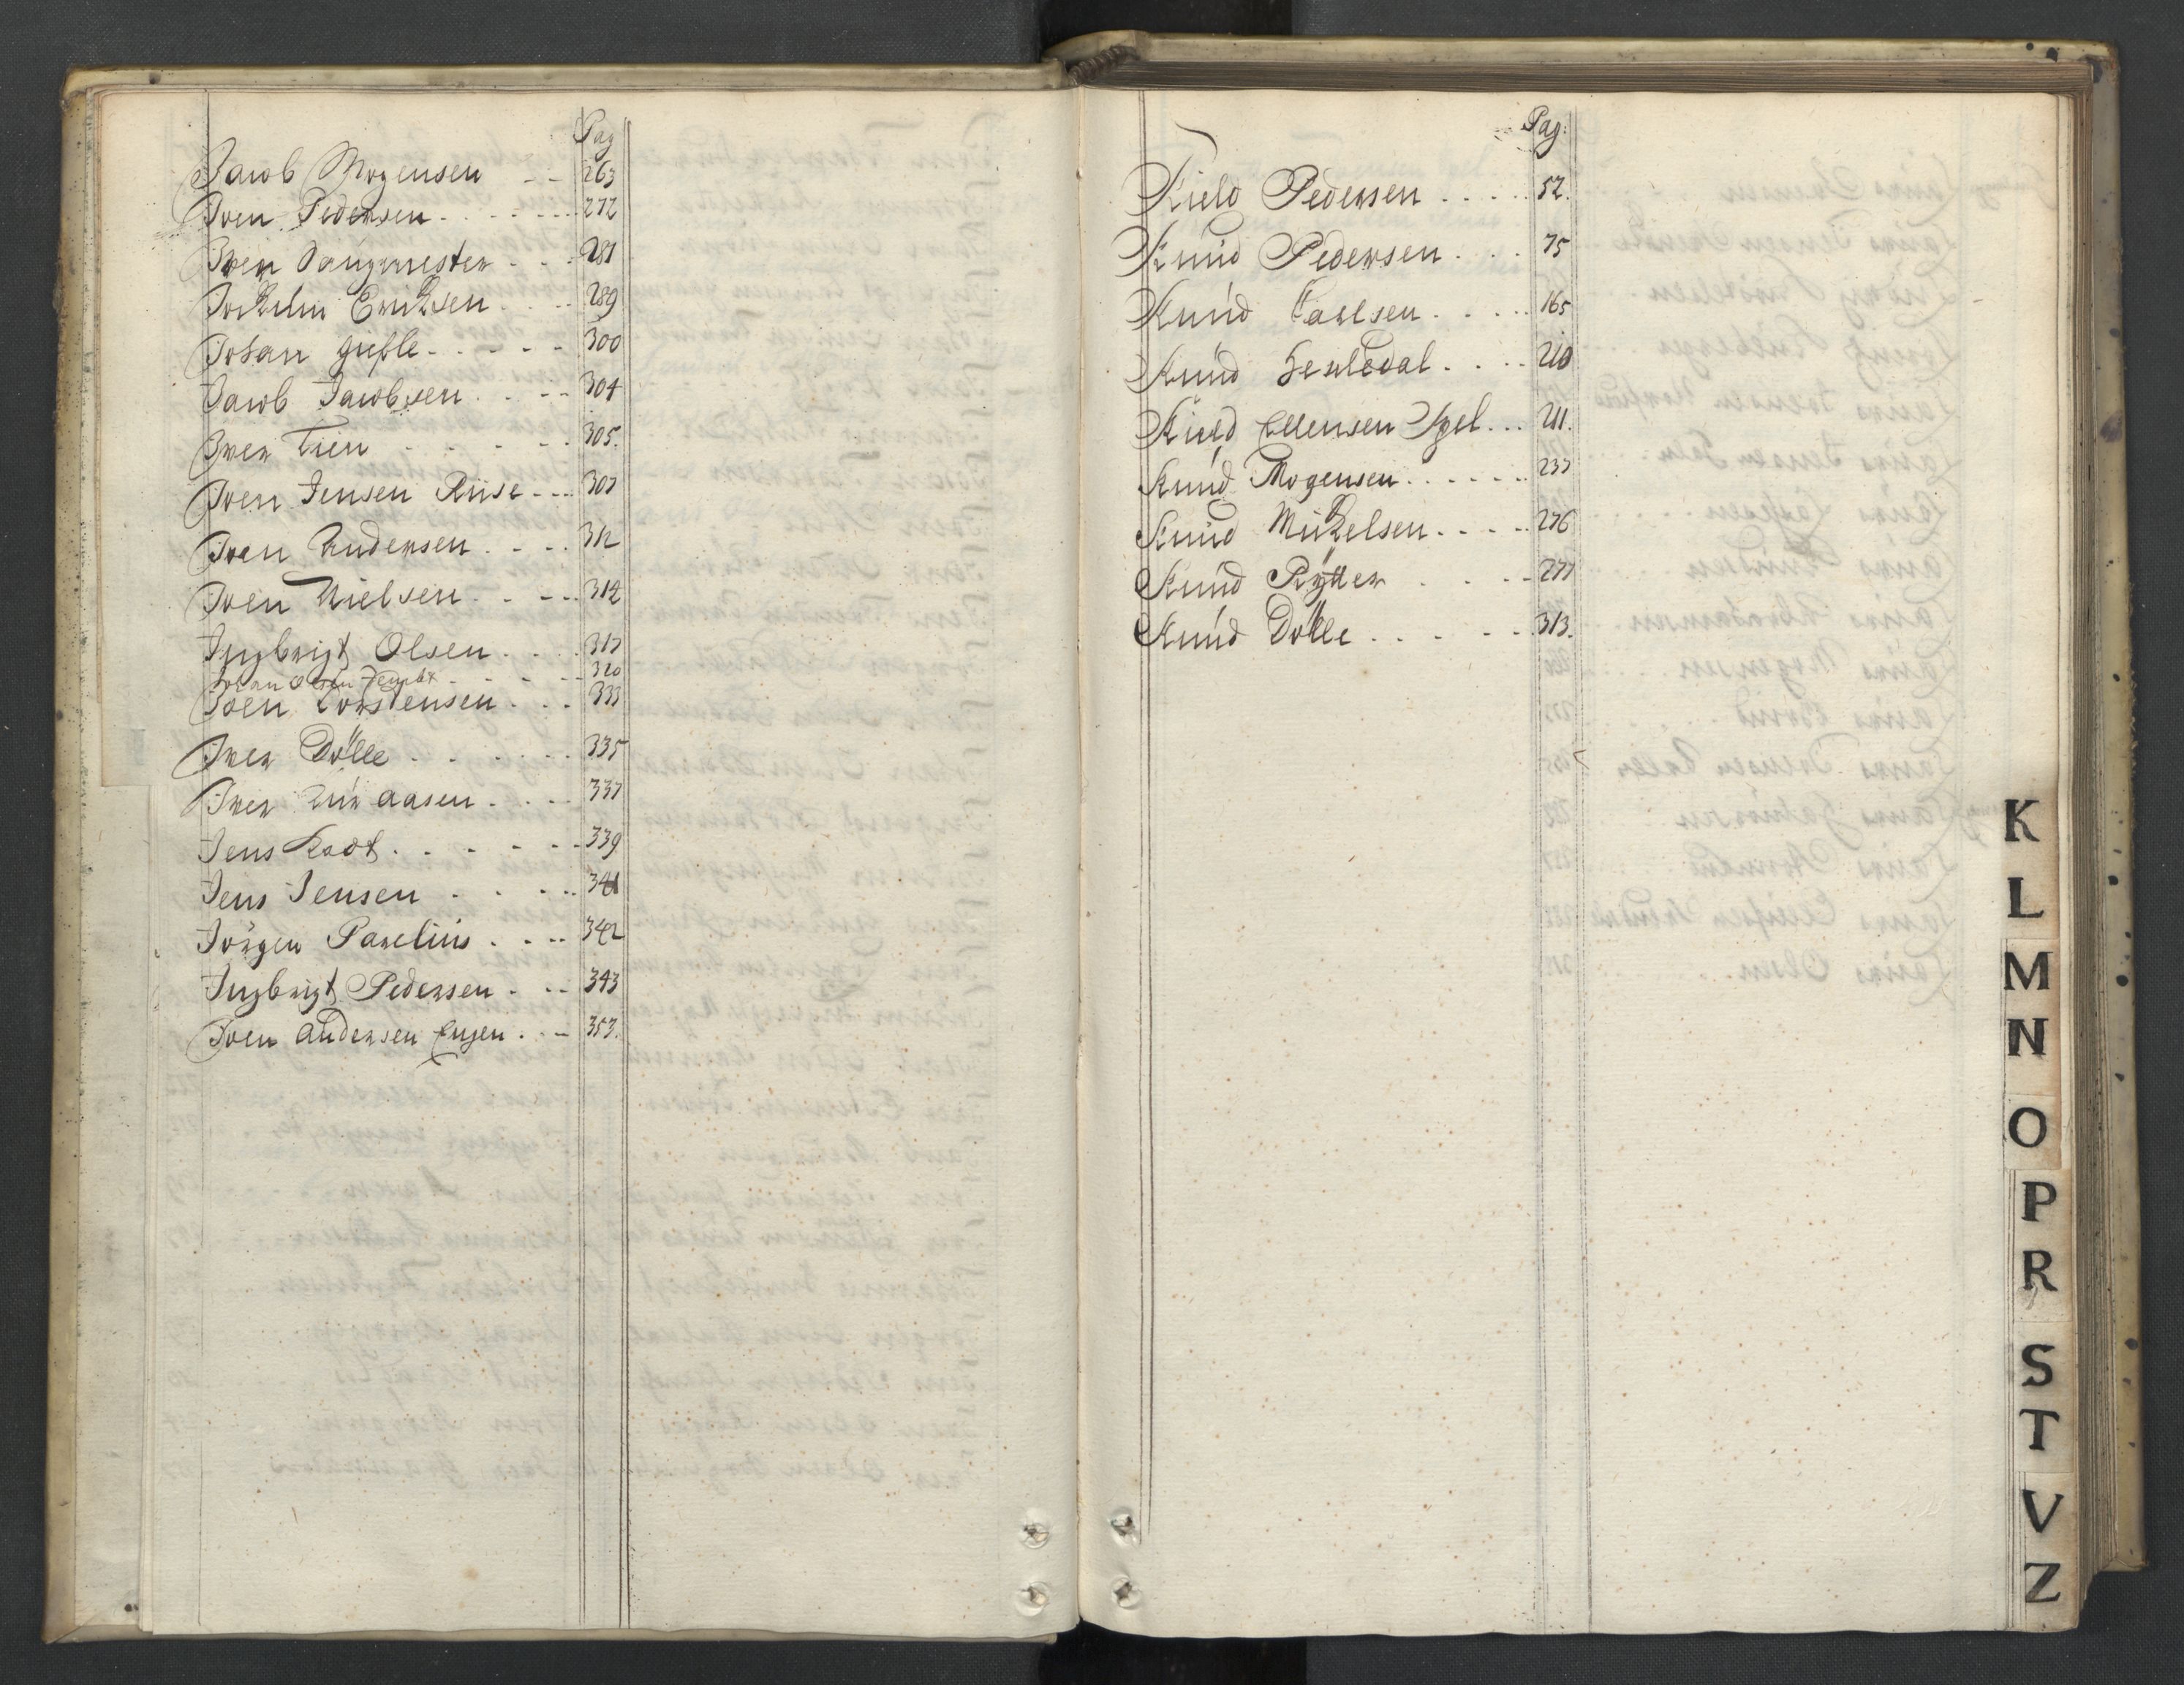 Pag
Jacob Mogensen - - 263
Joen Pedersen . . . . . . 272
Iver Saugmester . . . 281
Jochum Erichsen . . . . 289
Johan giesle . . . . . 300
Jacob Jacobsen . . . . 304
Iver Tien . . . . . . 305.
Joen Jensen Riise . . . 307
Joen Andersen . . . . 312
Joen Nielsen . . . . . 314
Ingbrigt Olsen . . . . 317
Johan - - - - 320
Joen Torstensen . . . 333
Iver Dölle . . . . . . 335
Iver aasen . . . . 337
Jens Rodt . . . . . . 339
Jens Jensen . . . . . 341
Jörgen Parelius . . . . 342
Ingbrigt Pedersen . . . 343
Joen Andersen Engen . . . 353.
Pag:
Kield Pedersen . . . . . 52.
Knud Pedersen . . . . 75
Knud Carlsen . . . . . 165
Knud . . . . 210
Kield Ellensen . . . 211.
Knud Mogensen . . . . . . 237
Knud Michelsen . . . . . 276
Knud Rÿtter . . . . 277
Knud Dölle . . . . . 313.
K
L
M
N
O
P
R
S
T
V
Z